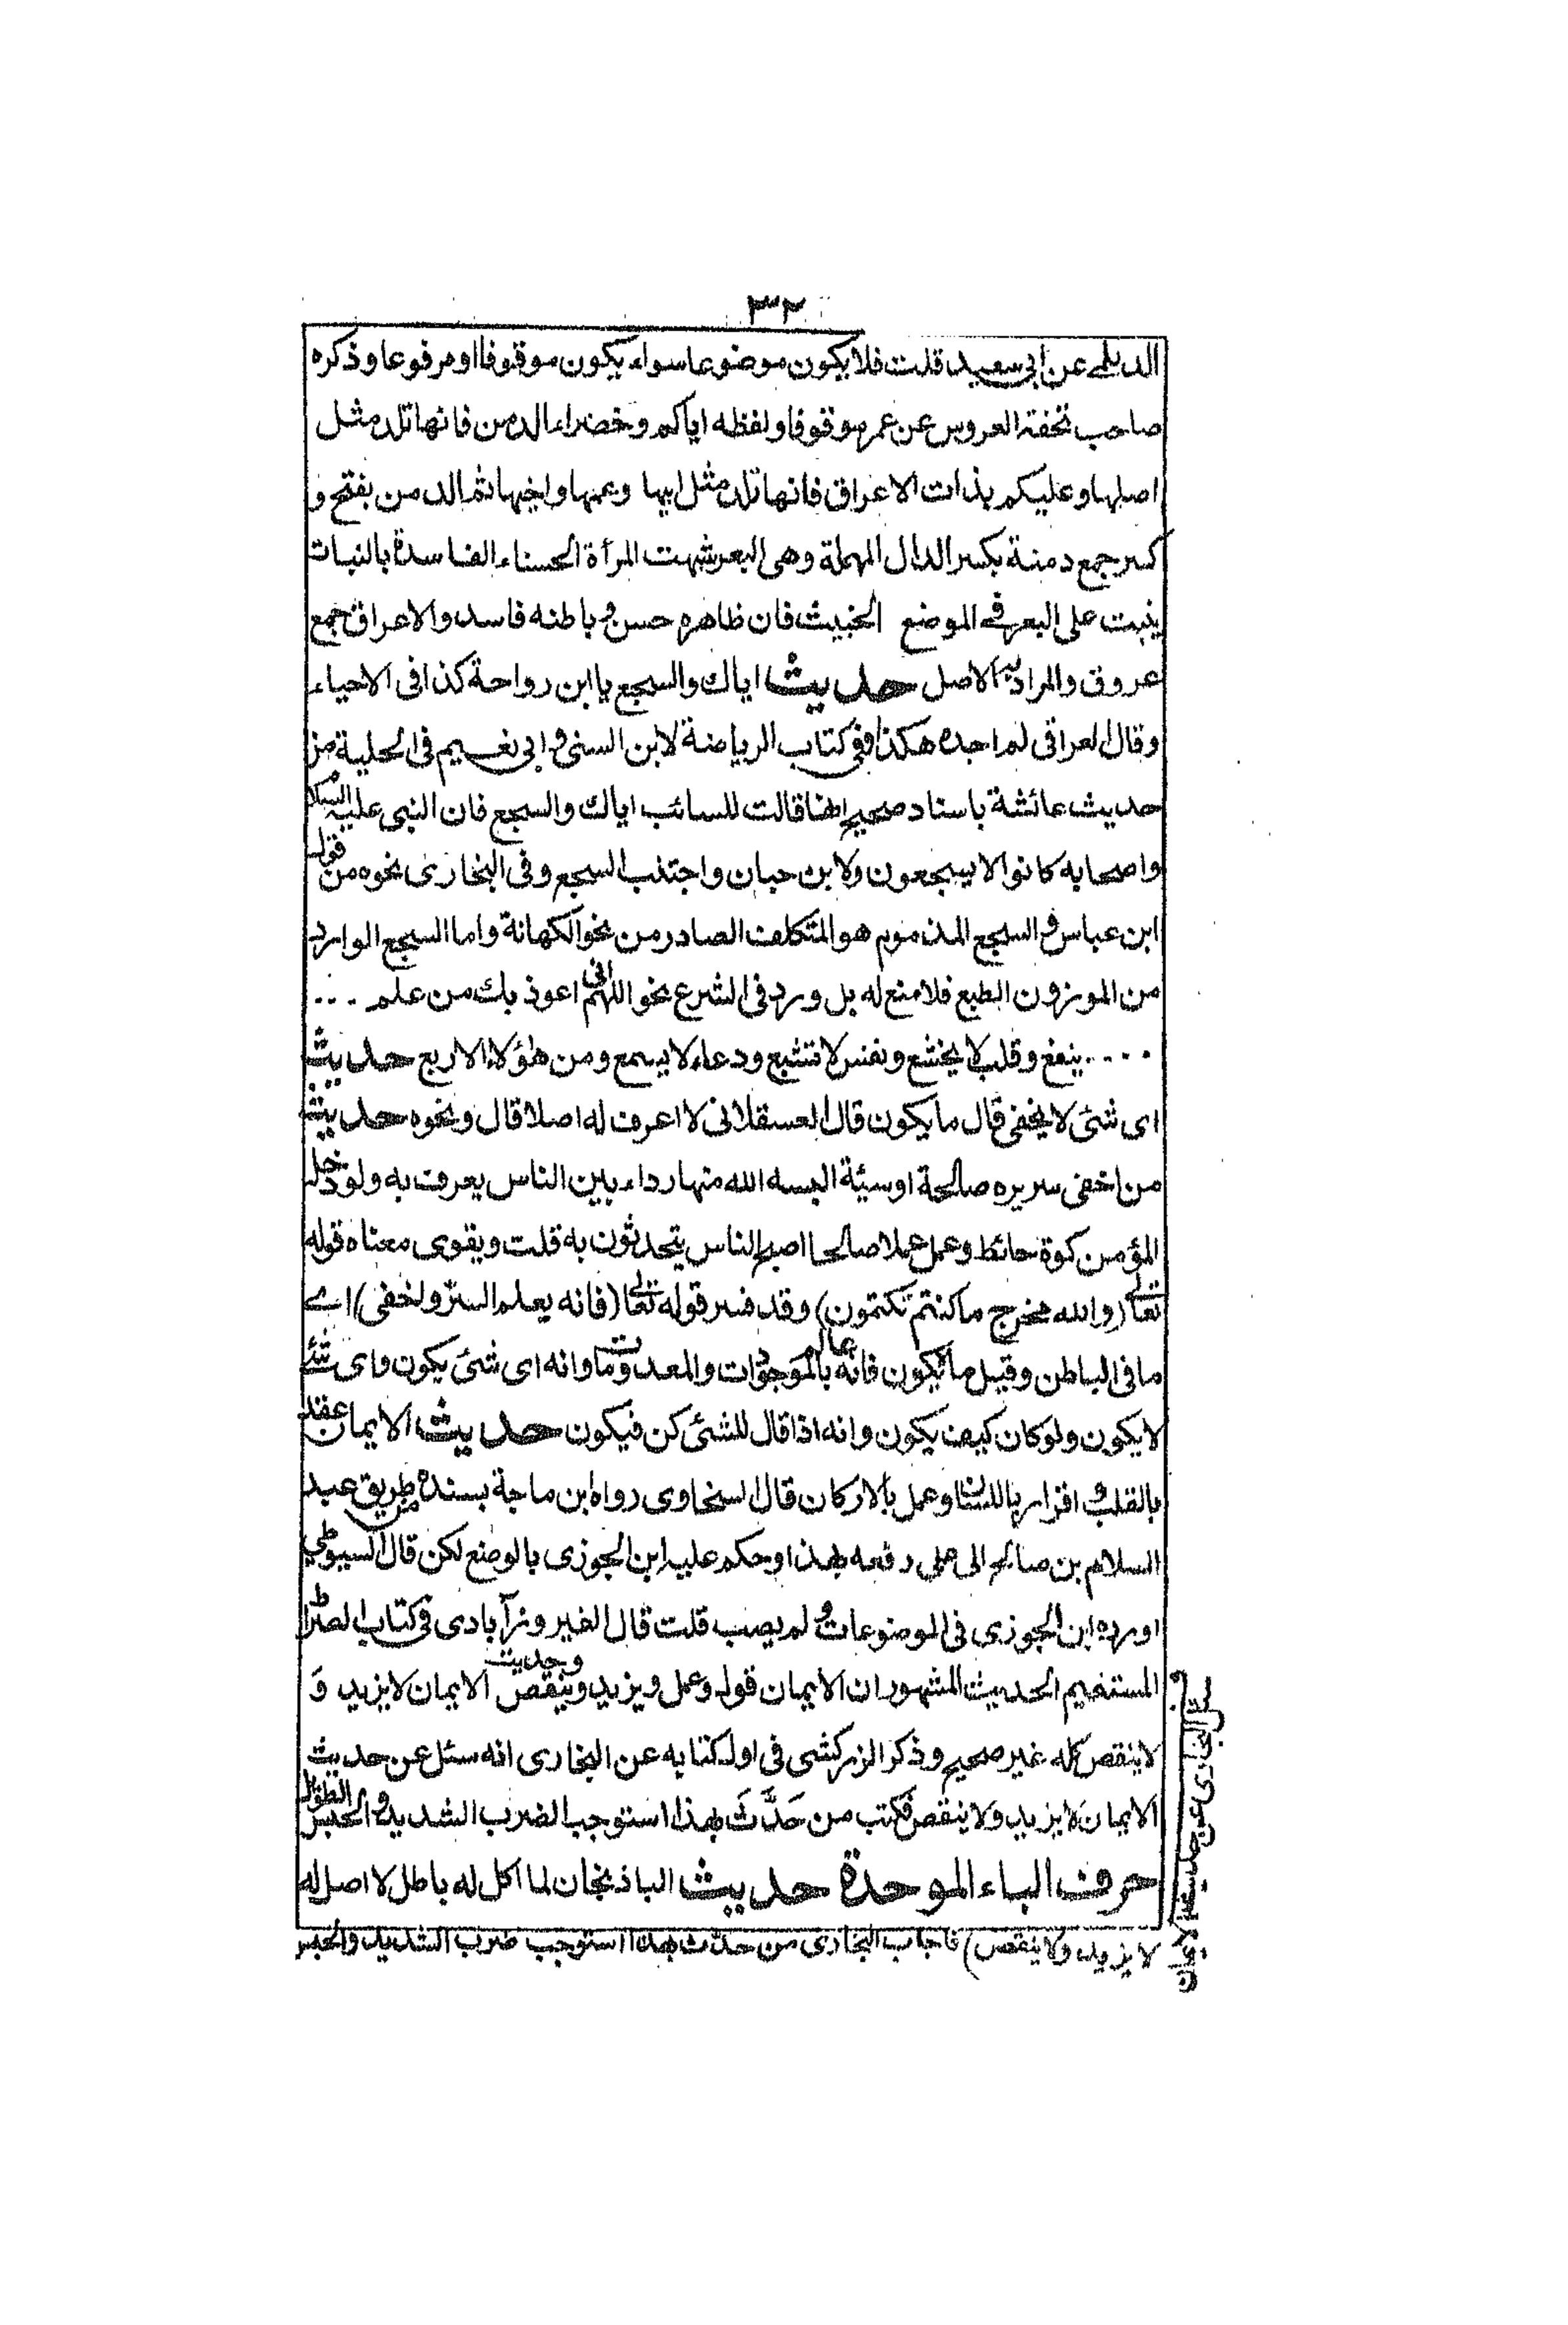 ٣٢
الديلمى عن ابى سعيد قلت فلا يكون موضوعا سواء يكون موقوفا او مرفوعا وذكره
صاحب تحفة العروس عن عمر موقوفا ولفظه اياكم وخضراء الدمن فانها تلد مثل
اصلها وعليكم بذات الاعراق فانها تلد مثل ابيها وعمها واخيها ثم الدمن بفتح و
كسر جمع دمنة بكسر الدال المهملة وهى البعر شبهت المرأة الحسناء الفاسدة بالنبات
ينبت على البعر فى الموضع الخبيث فان ظاهره حسن و باطنه فاسد والاعراق جمع
عروق والمراد بها الاصل حديث اياك والسجع يا ابن رواحة كذا فى الاحياء
وقال العراقى لم اجده هكذا وفى كتاب الرياضة لابن السنى و ابى نعيم فى الحلية من
حديث عائشة باسناد صحيح انها قالت للسائب اياك والسجع فان النبى عليه السلام
واصحابه كانوا لا يسجعون ولابن حبان واجتنب السجع وفى البخارى نحوه من قول
ابن عباس و السجع المذموم هو المتكلف الصادر من نحو الكهانة واما السجع الوارد
من الموزون الطبع فلا منع له بل ورد فى الشرع نحو اللهم انى اعوذ بك من علم ...
.... ينفع وقلب لا يخشع ونفس لا تشبع ودعاء لا يسمع ومن هؤلاء الاربع حديث
اى شئ لا يخفى قال ما يكون قال العسقلانى لا اعرف له اصلا قال ونحوه حديث
من اخفى سريره صالحة او سيئة البسه الله منها رداء بين الناس يعرف به ولو دخل
المؤمن كوة حائط وعمل عملا صالحا اصبح الناس يتحدثون به قلت ويقوى معناه قوله
تعالى (والله مخرج ما كنتم تكتمون) وقد فسر قوله تعالى (فانه يعلم السر واخفى) اے
ما فى الباطن وقيل ما يكون فانه عالم بالموجودات والمعدومات وانه اى شئ يكون واى شئ
لا يكون ولو كان كيف يكون وانه اذا قال للشئ كن فيكون حديث الايمان عقد
بالقلب و اقرار باللسان وعمل بالاركان قال السخاوى رواه ابن ماجة بسنده من طريق عبد
السلام بن صالح الى على رفعه بهذا وحكم عليه ابن الجوزى بالوضع لكن قال السيوطى
اورده ابن الجوزى فى الموضوعات و لم يصب قلت قال الفيروزآبادى فى كتاب الصراط
المستقيم الحديث المشهور ان الايمان قول وعمل ويزيد وينقص وحديث الايمان لا يزيد وَ
لا ينقص كله غير صحيح وذكر الزركشى فى اول كتابه عن البخارى انه سئل عن حديث
الايمان لا يزيد ولا ينقص فكتب من حَدَّثَ بهذا استوجب الضرب الشديد و الحبس الطويل
حرف الباء الموحدة حديث الباذنجان لما اكل له باطل لا اصل له
لا يزيد ولا ينقص) فاجاب البخارى من حدث بهذا استوجب ضرب الشديد والحبس
البخارى عن حديث الايمان